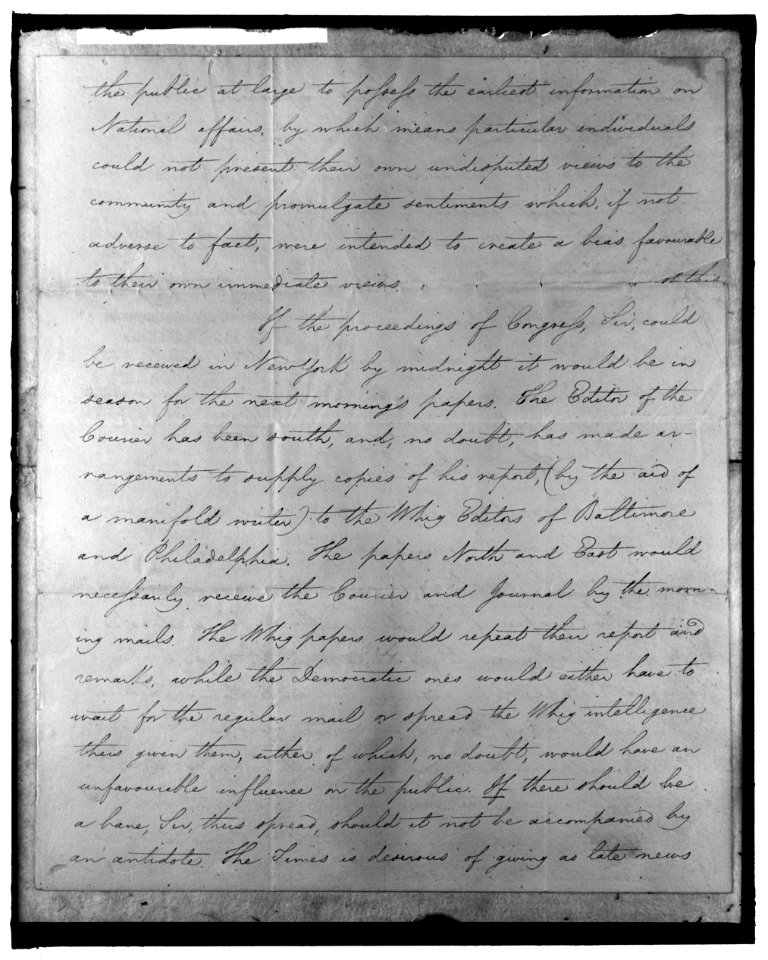 the public at large to possess the earliest information on
National affairs, by which means particular individuals
could not present their own undisputed views to the
community and promulgate sentiments which, if not
adverse to fact, were intended to create a bias favourable
to their own immediate views.
If the proceedings of Congress, Sir, could
be received in New York by midnight it would be in
season for the next morning's papers. The Editor of the
Courier has been south, and, no doubt, has made ar-
rangements to supply copies of his report, (by the aid of
a manifold writer) to the Whig Editors of Baltimore
and Philadelphia. The papers North and East would
necessarily receive the Courier and Journal by the morn-
ing mails. The Whig papers would repeat their report and
remarks, while the Democratic ones would either have to
wait for the regular mail or spread the Whig intelligence
thus given them, either of which, no doubt, would have an
unfavourible influence on the public. If there should be
a bane, Sir, thus spread, should it not be accompanied by
an antidote. The Times is desirous of giving as late news